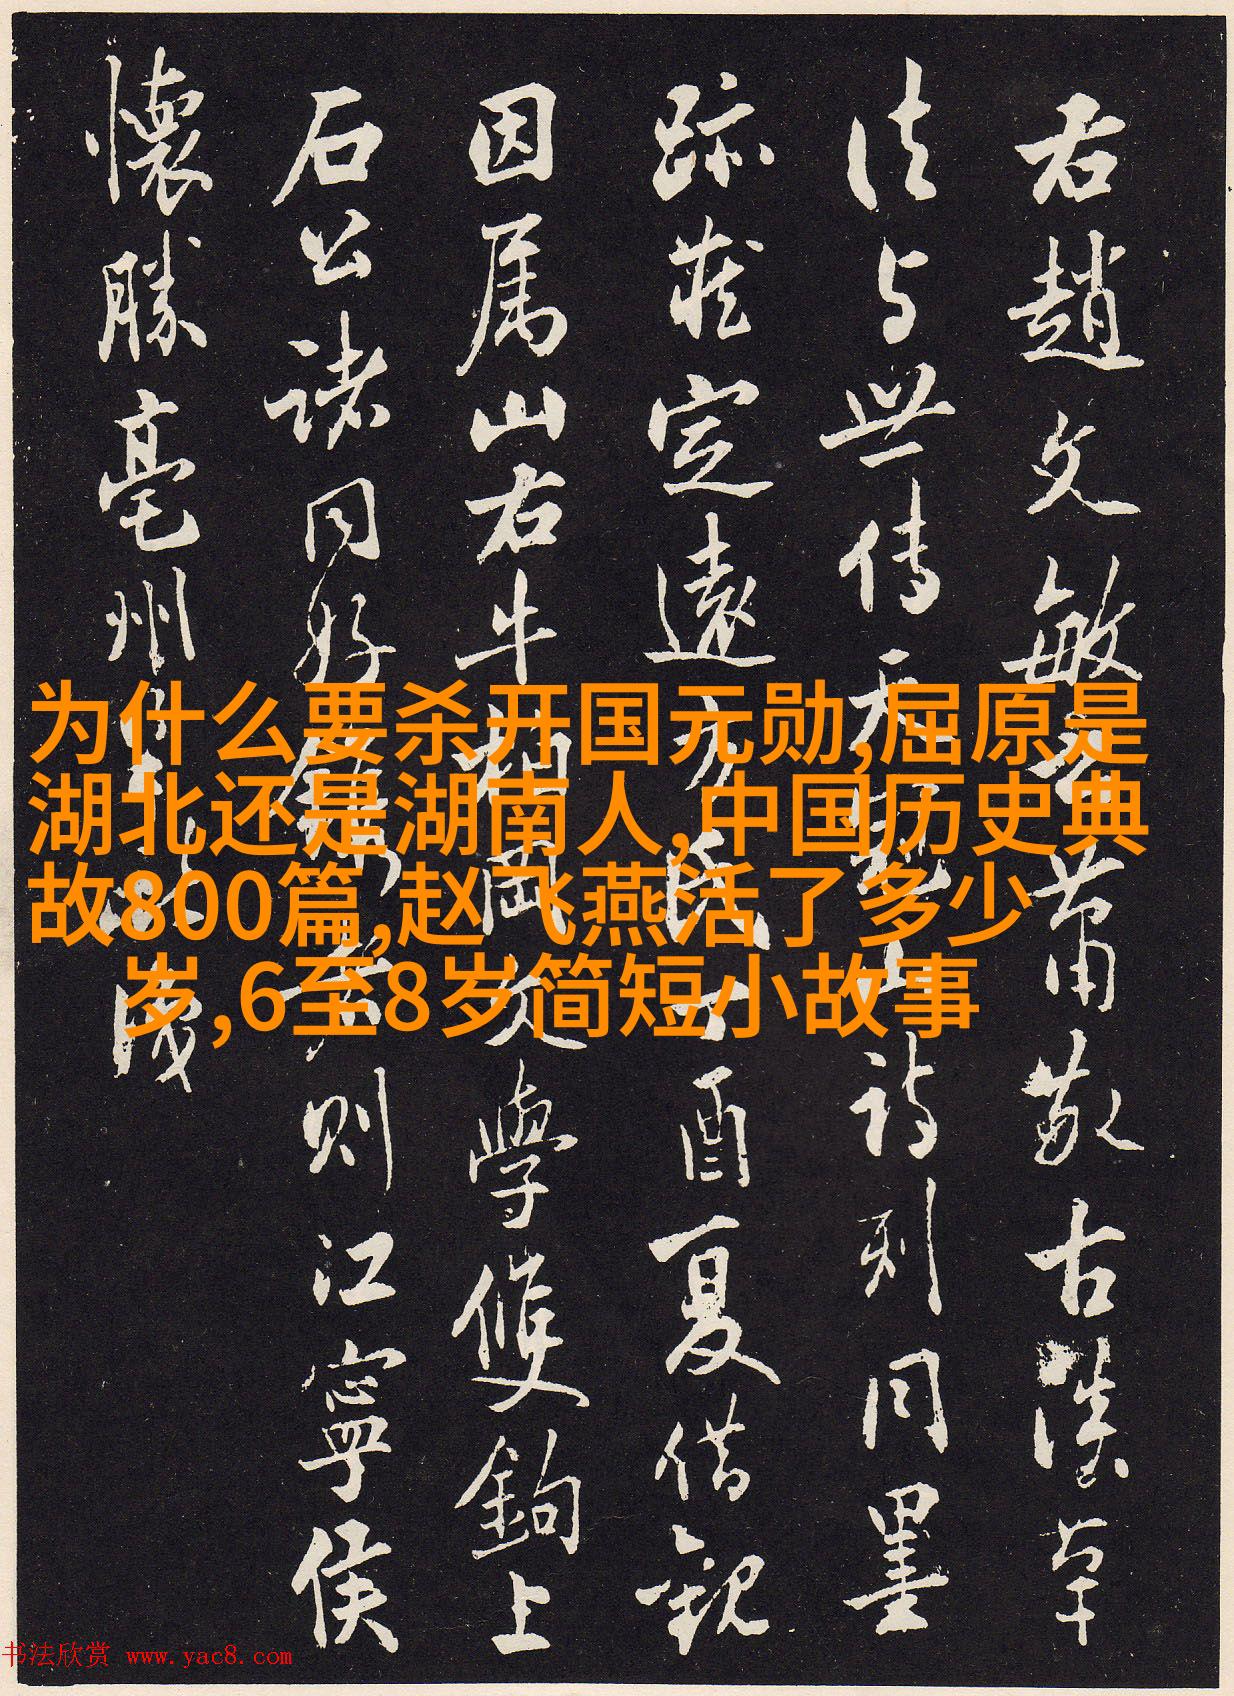 右趙文敏古漢草
法与世傳天冠山詩刻同墨
跡藏定遠方氏丁酉夏借觀
因属山右牛岡文學鉤上
石公諸同好則江寧侯
懷勝亳州
为什么要杀开国元勋,屈原是
湖北还是湖南人,中国历史典
故800篇,赵飞燕活了多少
岁,6至8岁简短小故事
书法欣赏 www.yac8.com